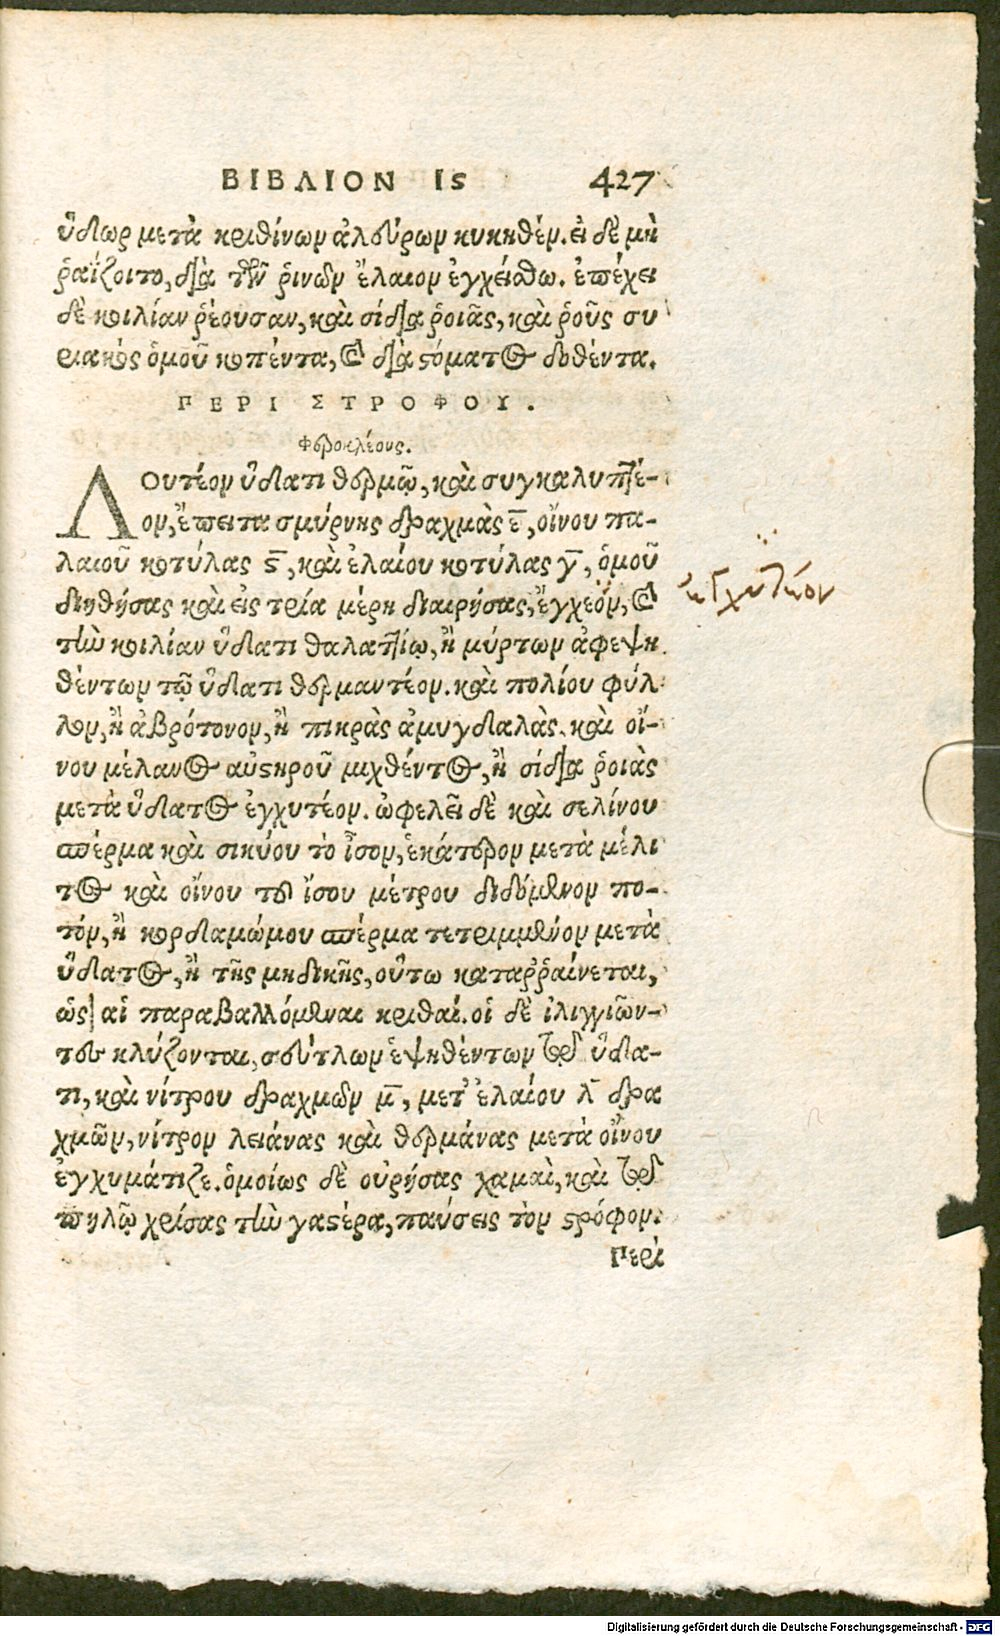 ΒΙΒΛΙΟΝ Ις 427
ὕδωρ μετὰ κριθίνων ἀλεύρων κυκηθέν. εἰ δὲ μὴ
ῥαΐζοιτο, διὰ τῶν ῥινῶν ἔλαιον ἐγχείσθω. ἐπέχει
δὲ κοιλίαν ῥέουσαν, καὶ σίδια ῥοιᾶς, καὶ ῥοῦς συ
ριακὸς ὁμοῦ κοπέντα, καὶ διὰ στόματος δοθέντα.
ΠΕΡΙ ΣΤΡΟΦΟΥ.
Φεροκλέους.
ΛΟυτέον ὕδατι θερμῷ, καὶ συγκαλυπτέ-
ον, ἔπειτα σμύρνης δραχμὰς ε̄, οἴνου πα-
λαιοῦ κοτύλας ς̄, καὶ ἐλαίου κοτύλας γ̄, ὁμοῦ
διηθήσας καὶ εἰς τρία μέρη διαιρήσας, ἔγχεον, καὶ
ἐγχυτέον
τὴν κοιλίαν ὕδατι θαλαττίῳ, ἢ μύρτων ἀφεψη
θέντων τῷ ὕδατι θερμαντέον. καὶ πολίου φύλ
λον, ἢ ἀβρότονον, ἢ πικρὰς ἀμυγδαλὰς. καὶ οἴ-
νου μέλανος αὐστηροῦ μιχθέντος, ἢ σίδια ῥοιὰς
μετὰ ὕδατος ἐγχυτέον. ὠφελεῖ δὲ καὶ σελίνου
σπέρμα καὶ σικύου τὸ ἶσον, ἑκάτερον μετὰ μέλι
τος καὶ οἴνου τοῦ ἴσου μέτρου διδόμενον πο-
τόν, ἢ καρδαμώμου σπέρμα τετριμμένον μετὰ
ὕδατος, ἢ τῆς μηδικῆς, οὕτω καταῤῥαίνεται,
ὥστ αἱ παραβαλλόμεναι κριθαί. οἱ δὲ ἰλιγγιῶν-
τες κλύζονται, σεύτλων ἑψηθέντων ἐν ὕδα-
τι, καὶ νίτρου δραχμῶν μ̄, μετ' ἐλαίου λ̄ δρα
χμῶν, νίτρον λειάνας καὶ θερμάνας μετὰ οἴνου
ἐγχυμάτιζε. ὁμοίως δὲ οὐρήσας χαμαὶ, καὶ ἐν
πηλῷ χρίσας τὴν γαστέρα, παύσεις τὸν στρόφον.
Περὶ
Digitalisierung gefördert durch die Deutsche Forschungsgemeinschaft - DFG